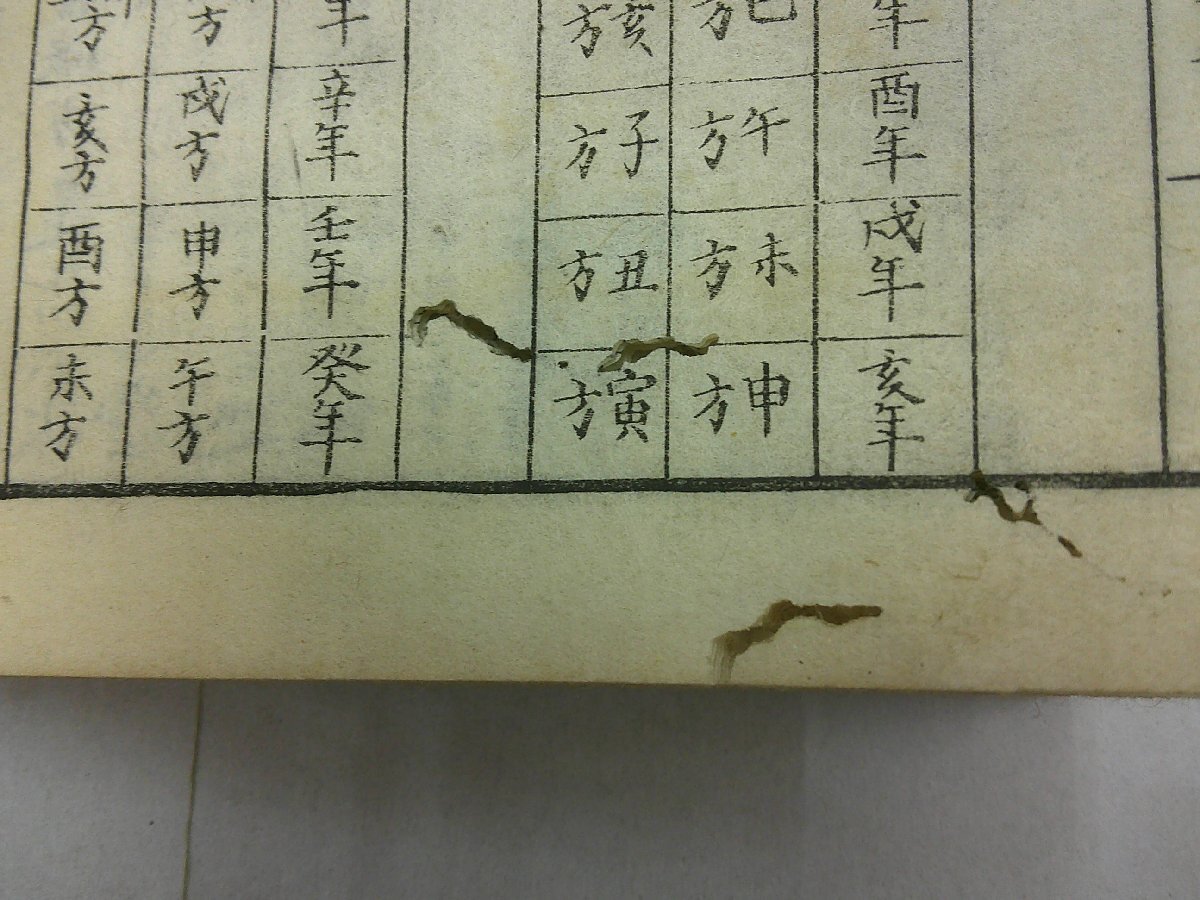 年
酉年
戌年
亥年
巳方
午方
未方
申方
亥方
子方
丑方
寅方
年
辛年
壬年
癸年
方
戌方
申方
午方
方
亥方
酉方
未方